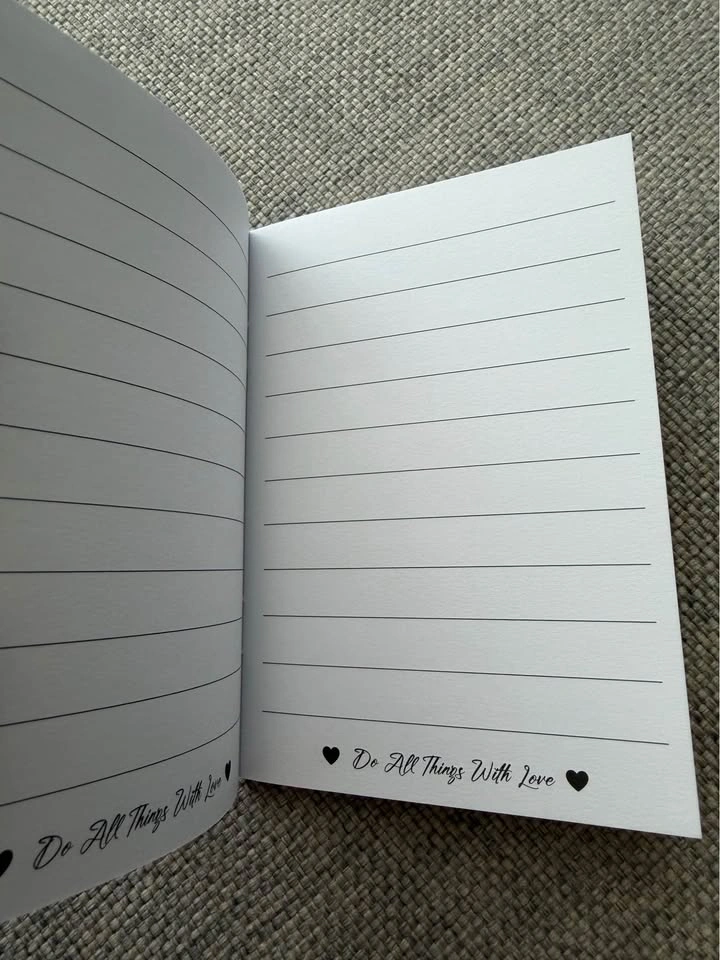 Do All Things With Love
Do All Things With Love